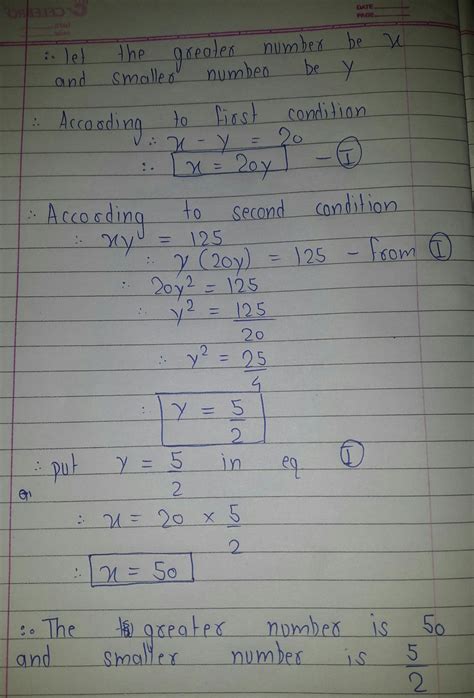 CELEBRO
DATE
PAGE
∴ let the greater number be x
and smaller number be y
∴ According to first condition
∴ x - y = 20
∴ x = 20y - I
∴ According to second condition
∴ xy = 125
∴ y (20y) = 125 - from I
∴ 20y² = 125
∴ y² = 125/20
∴ y² = 25/4
∴ y = 5/2
∴ put y = 5/2 in eqⁿ I
∴ x = 20 × 5/2
∴ x = 50
∴ The greater number is 50
and smaller number is 5/2